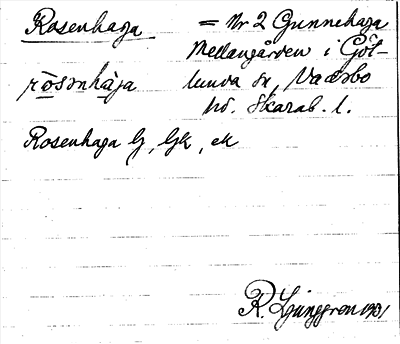 Rosenhaga = Nr 2 Gunnehaga
Mellangården i Göt-
rosenhaga lunda sn, Vadsbo
hd. Skarab. l.
Rosenhaga G, GK, ek
R. Ljunggren 1931